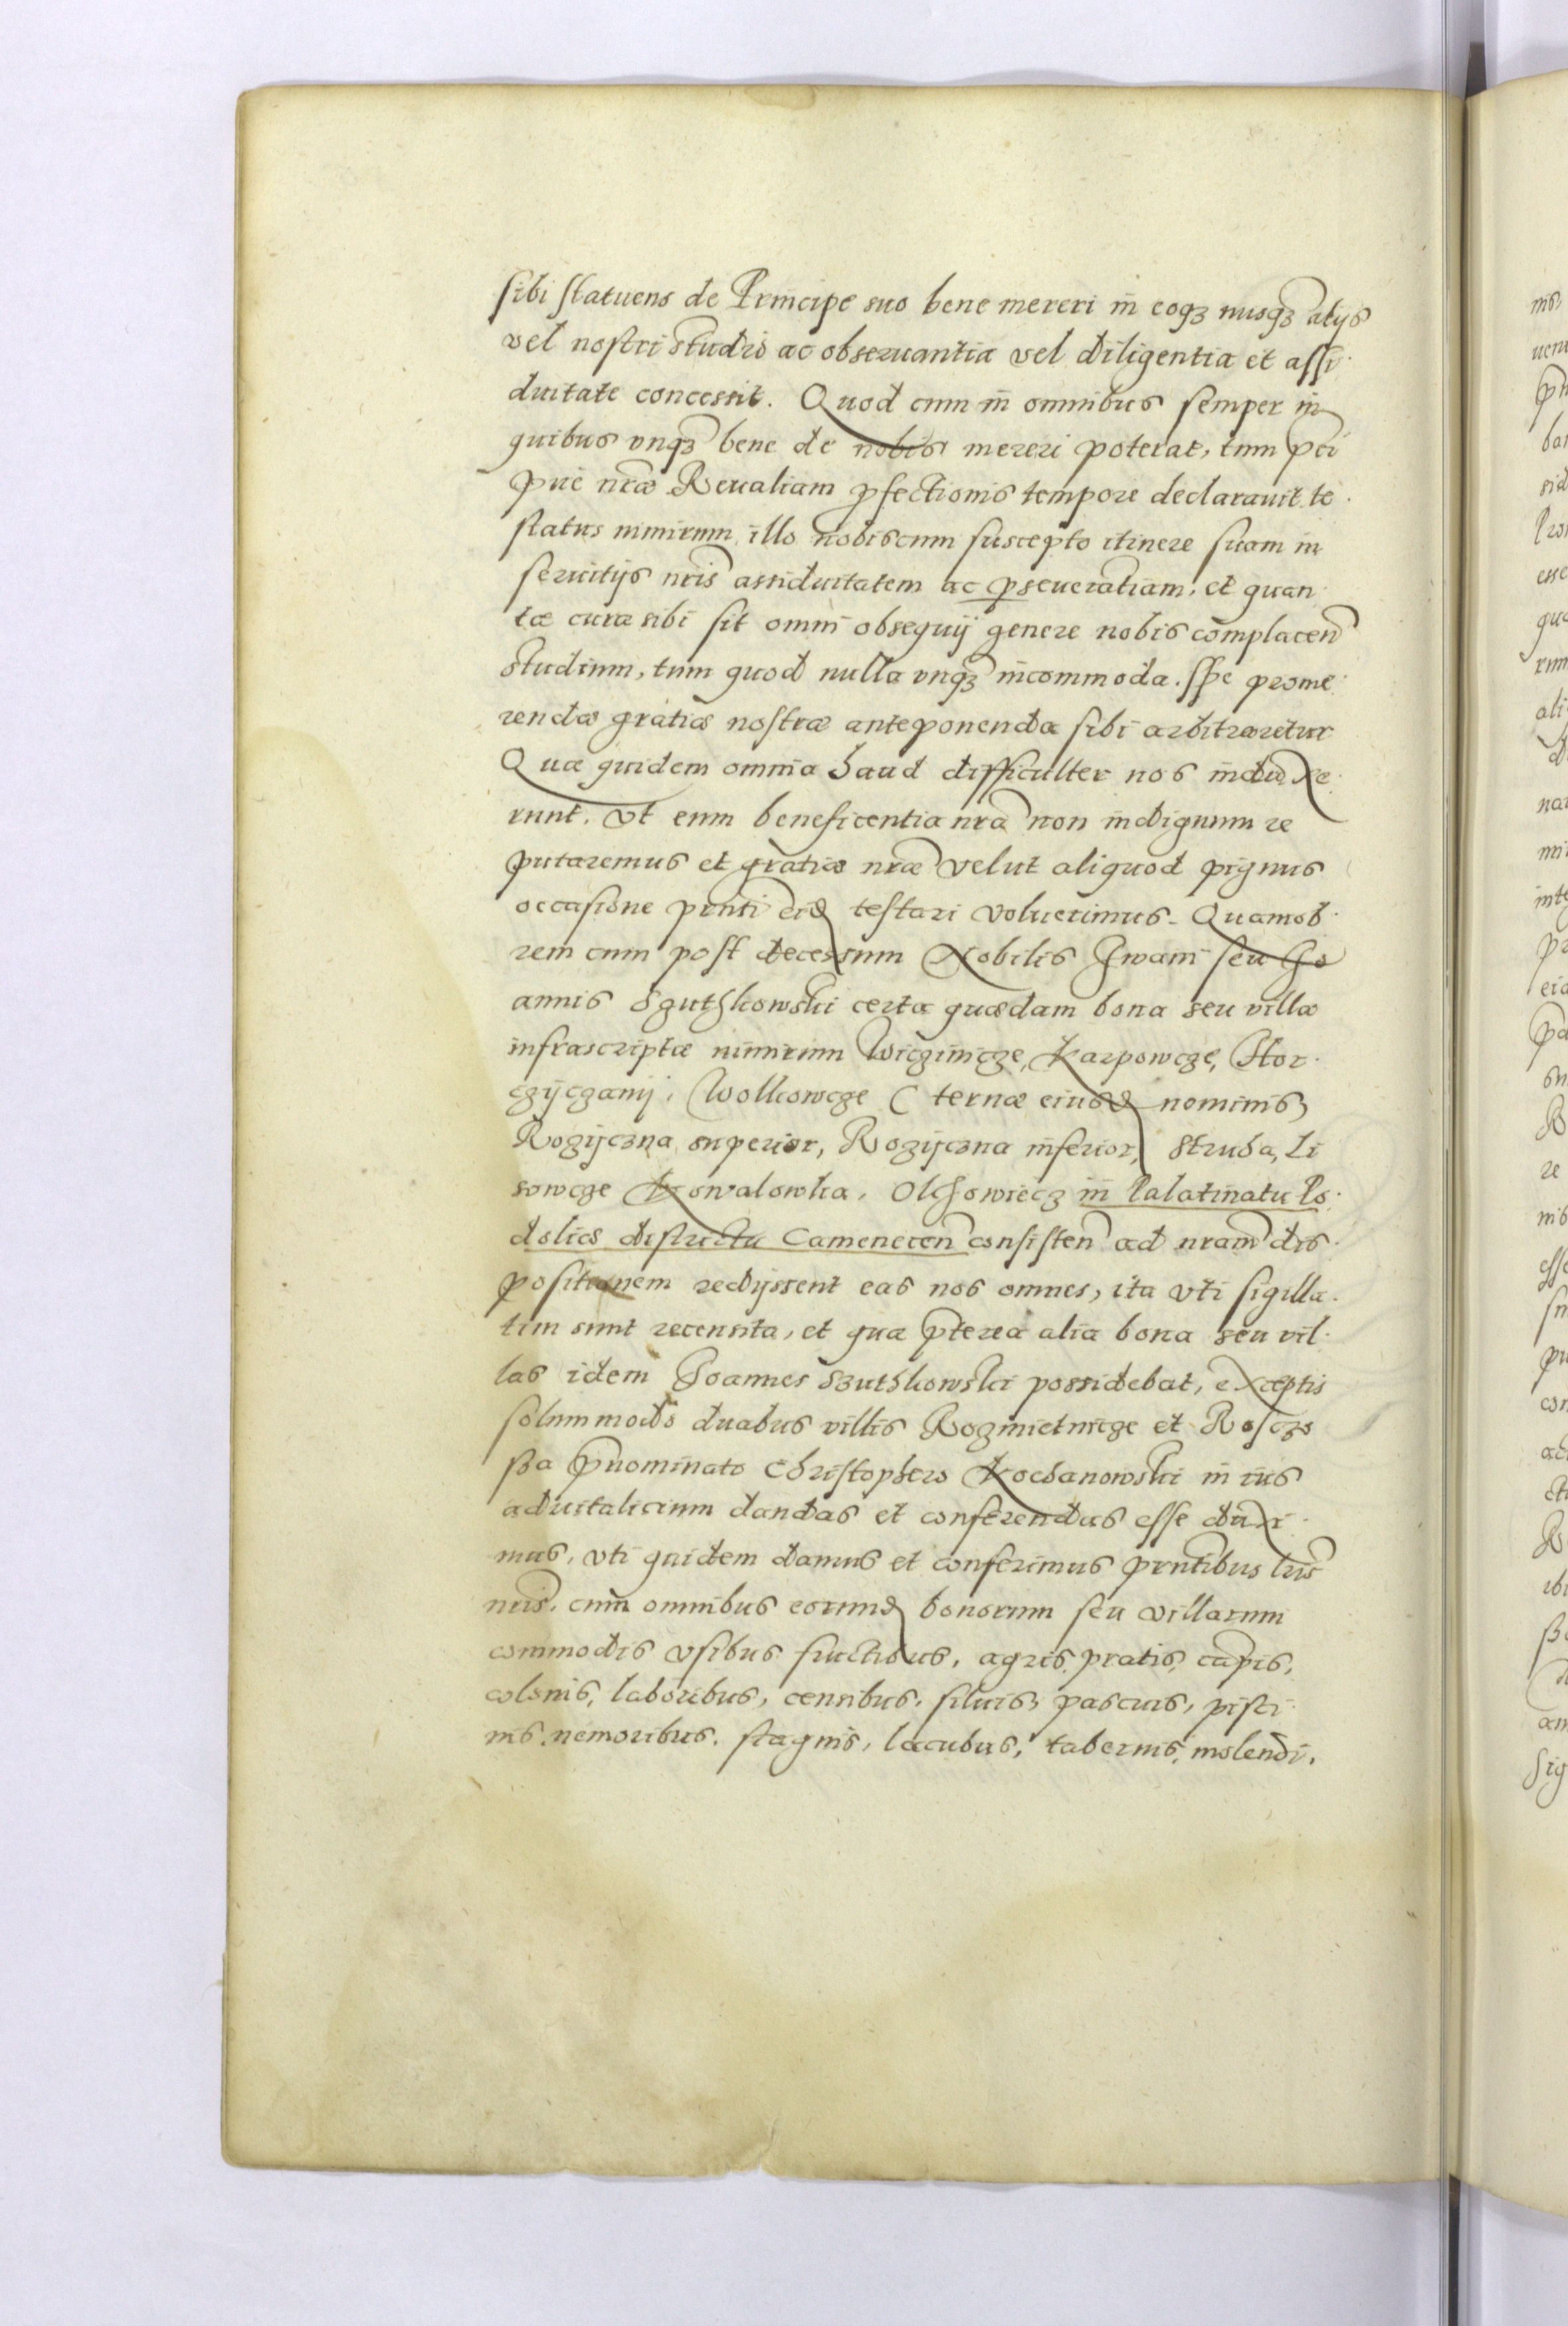 sibi statuens de Principe suo bene mereri in eoq3 nusq3 alijs
vel nostri studio ac obseruantia vel diligentia et assi
duitate concessit. Quod cum in omnibus semper in
quibus vnq3 bene de nobis mereri poterat, tum pci
pue nrae Reualiam pfectionis tempore declarauit te
status nimirum illo nobiscum suscepto itinere suam in
seruitijs nris assiduitatem ac pseueratiam, et quan
tae curae sibi sit omni obsequij genere nobis complacen
studium, tum quod nulla vnq3 incommoda. Spe prome
rendae gratiae nostrae anteponenda sibi arbitraretur
Quae quidem omnia haud difficulter nos induxe
runt. Vt eum beneficentia nra non indignum re
putaremus et gratiae nrae velut aliquod pignus
occasione pnti eid testari voluerimus. Quamob
rem cum post decessum Nobilis Iwani seu Io
annis Szuthkowski certa quaedam bona seu villae
infrascriptae nimirum Wiczinicze, Karpowcze, Hor
czyczanij, Wolkowcze (ternae eiusd nominis)
Rozijczna superior, Rozijczna inferior, Struha, Li
sowcze Kowalowka, Olchowiecz in Palatinatu Po
doliae districtu Camenecen consisten ad nram dis
positionem redijssent eas nos omnes, ita vti sigilla
tim sunt recensita, et quae pterea alia bona seu vil
las idem Ioannes Szuthkowski possidebat, exceptis
solummodo duabus villis Rogmietnicze et Rosczo
ßa pnominato Christophero Kochanowski in ius
aduitalicium dandas et conferendas esse duxi
mus, vti quidem damus et conferimus pntibus lris
nris. cum omnibus eorumd bonorum seu villarum
commodis vsibus fructibus, agris, pratis, capis,
colonis, laboribus, censibus, siluis, pascuis, pisci
nis, nemoribus, stagnis, lacubus, tabernis, molendi,